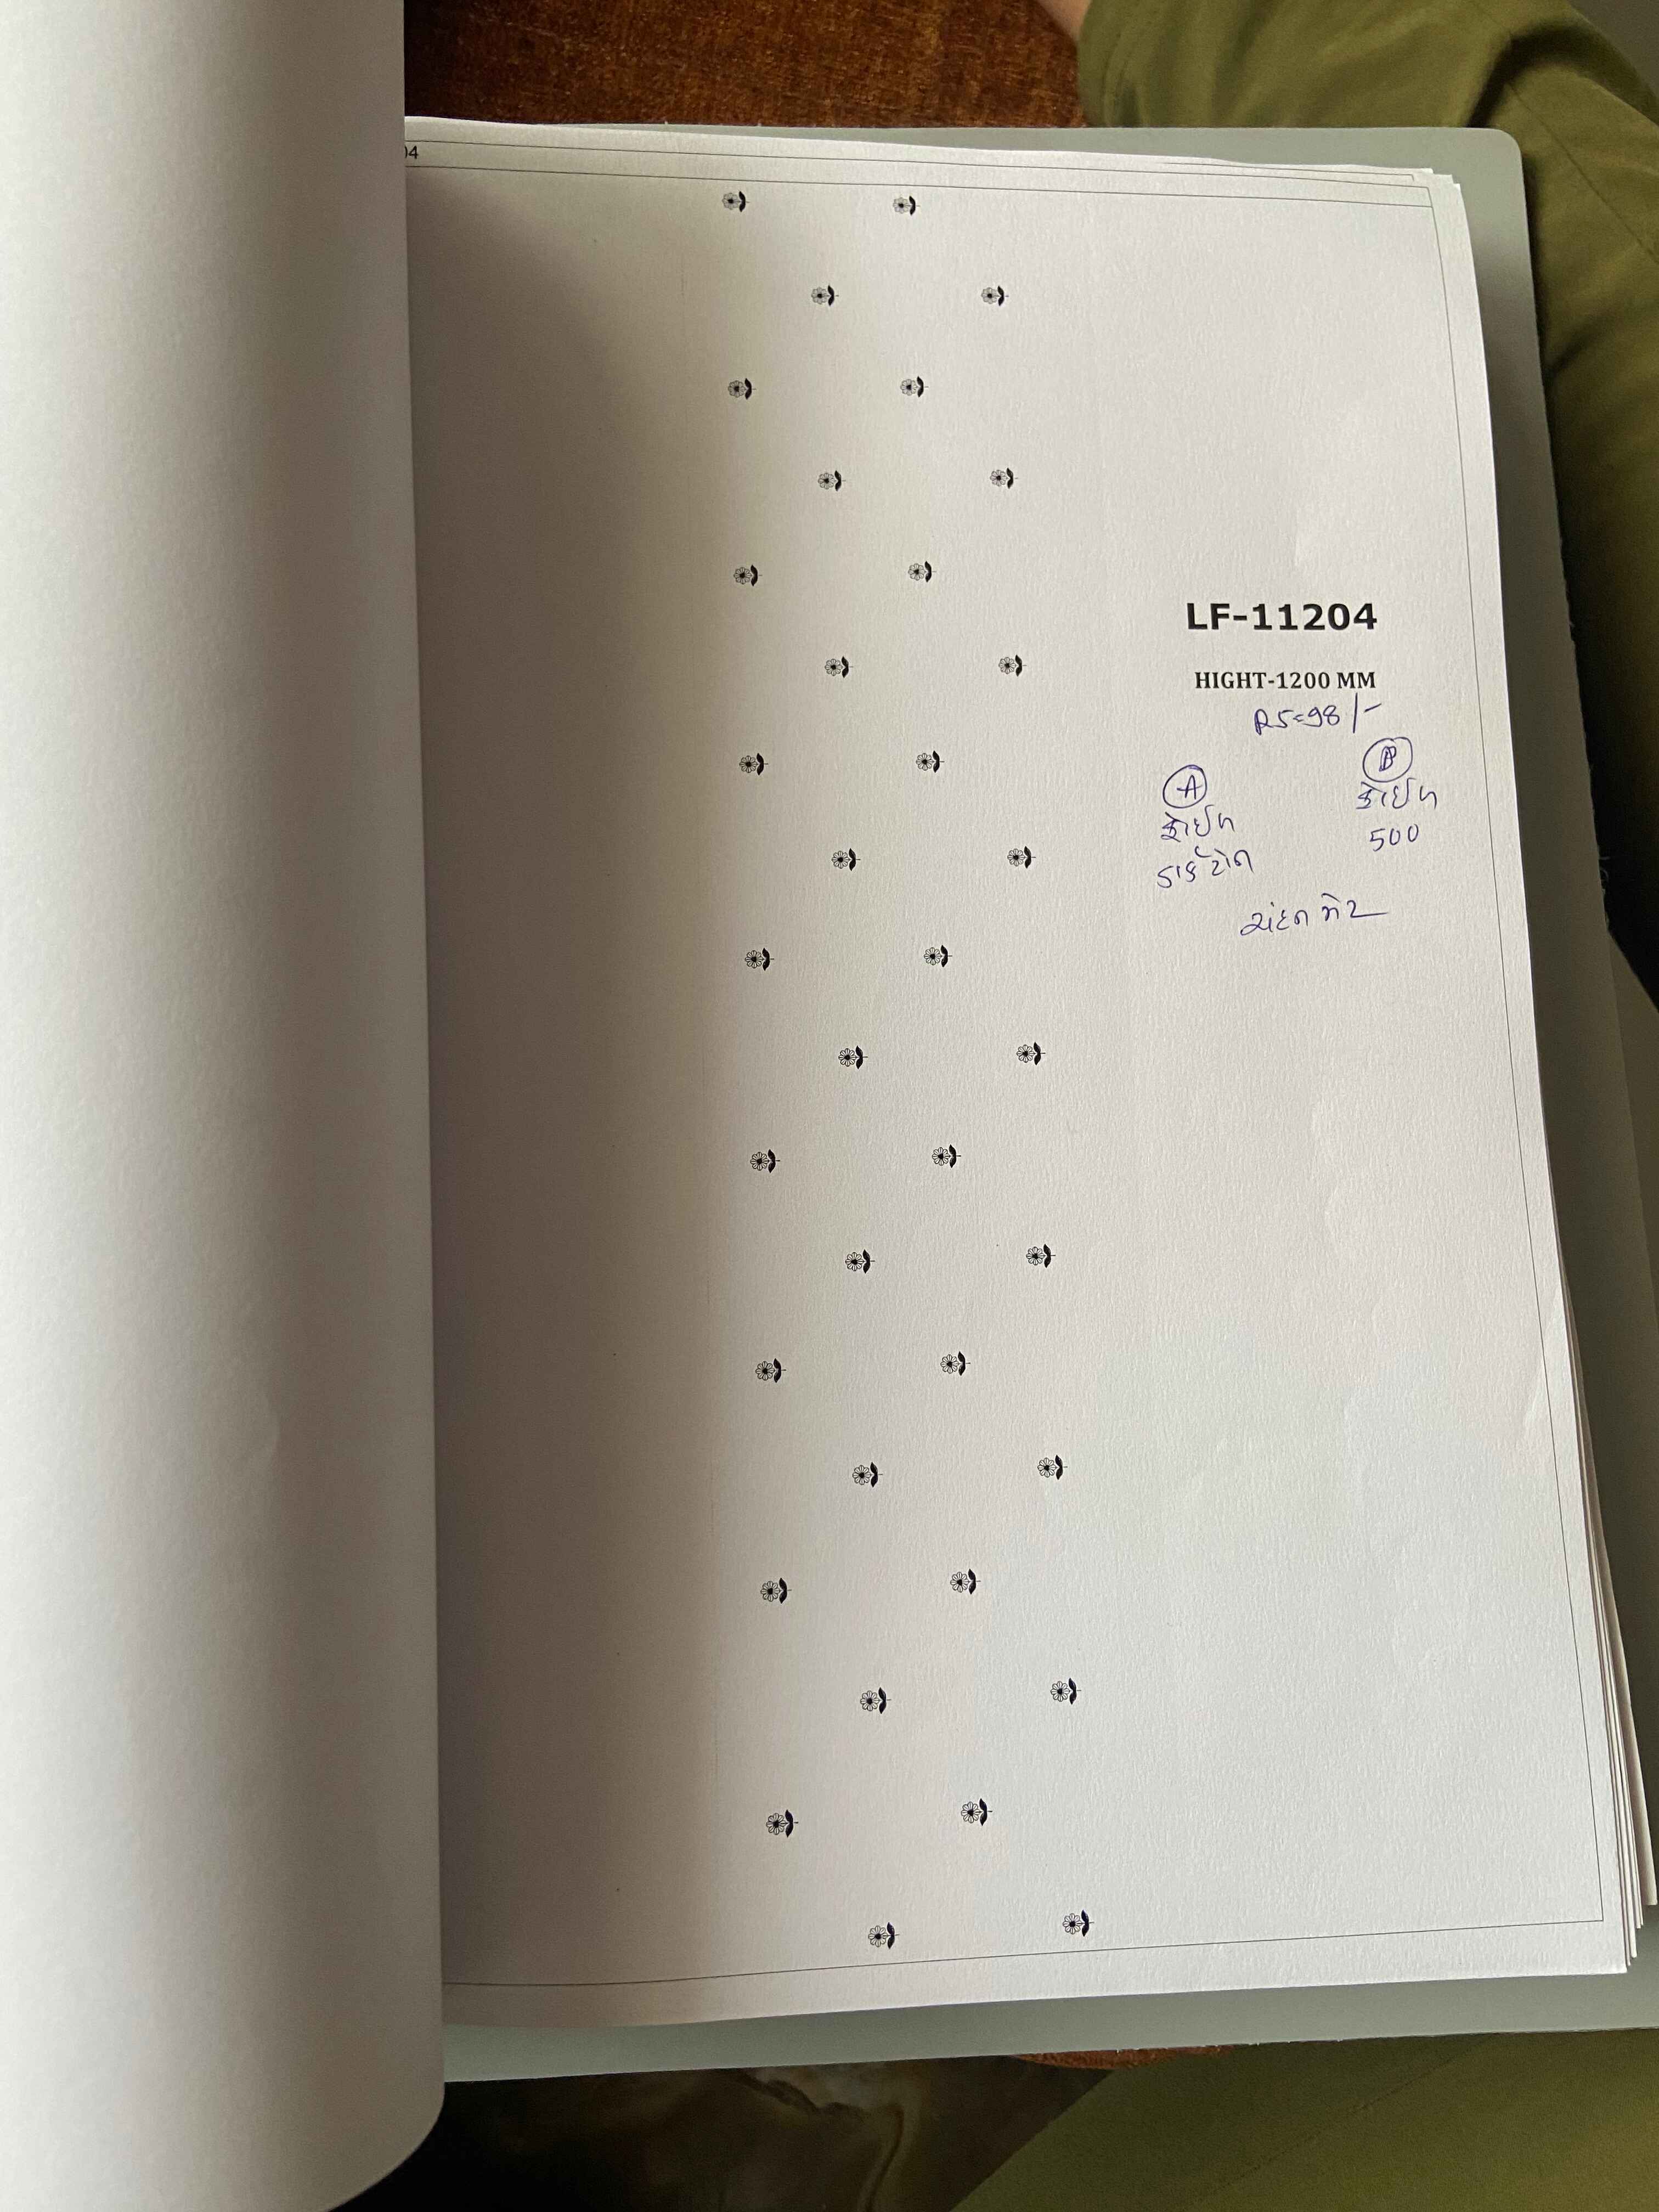 04
LF-11204
HIGHT-1200 MM
RS=98/-
A
ફાઇન
ડાર્ક ટોન
B
ફાઇન
500
ચંદન મેટ